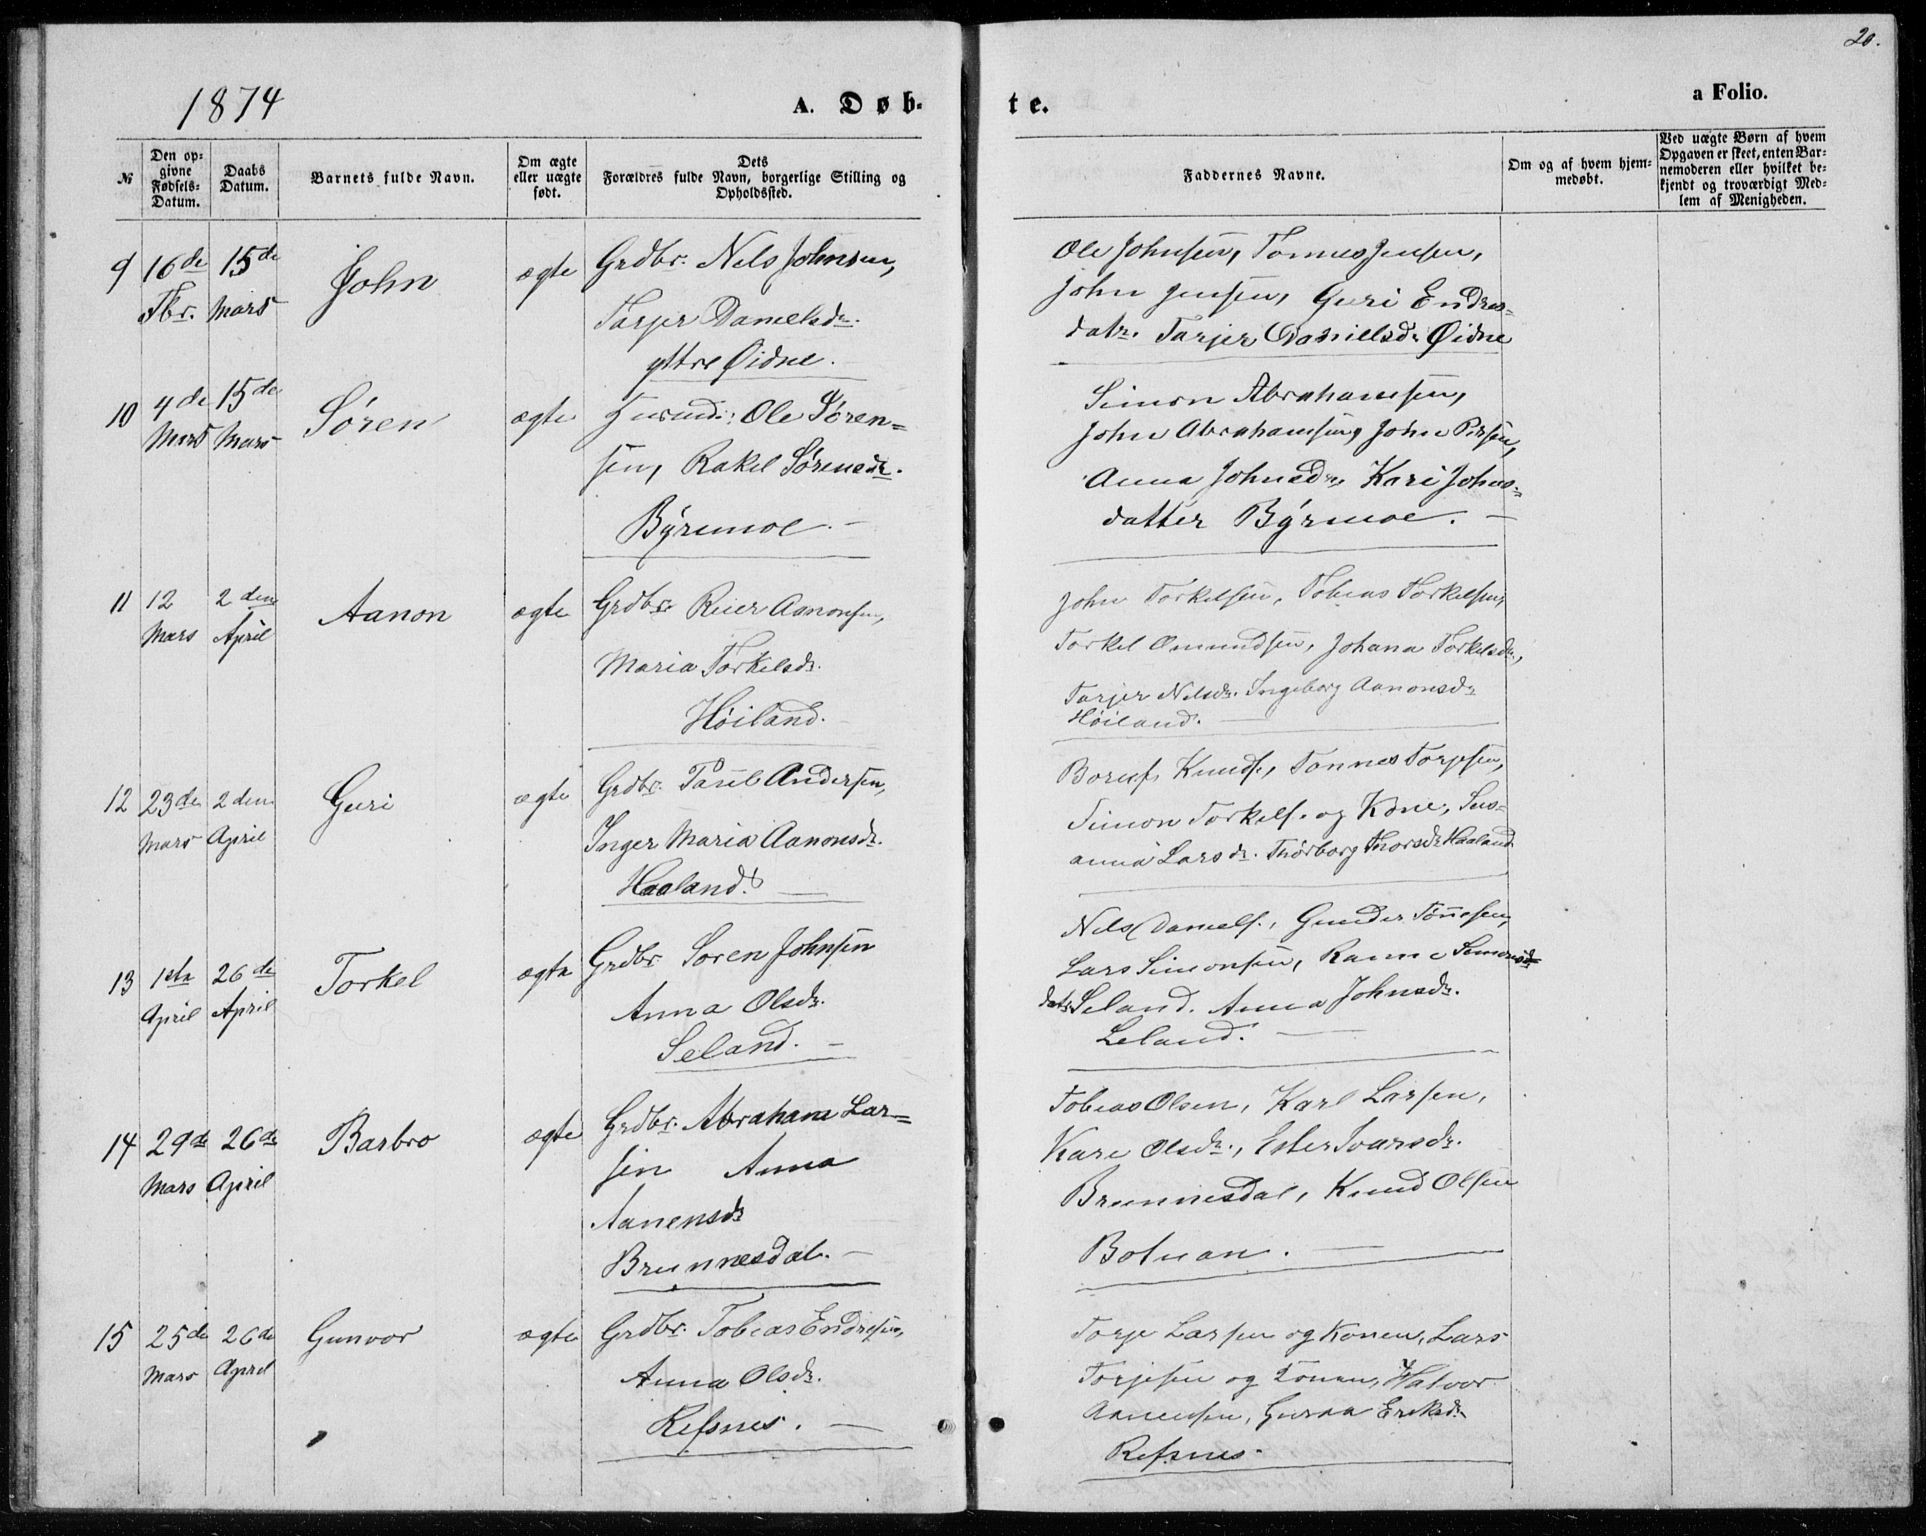 20.
1874
A. Døb-
te.
a Folio.
№
Den op-
givne
Fødsels-
Datum.
Daabs
Datum.
Barnets fulde Navn.
Om ægte
eller uægte
født.
Dets
Forældres fulde Navn, borgerlige Stilling og
Opholdssted.
Faddernes Navne.
Om og af hvem hjem-
medøbt.
Ved uægte Børn af hvem
Opgaven er skeet, enten Bar-
nemoderen eller hvilket be-
kjendt og troværdigt Med-
lem af Menigheden.
9 16de 15de John ægte Grdbr. Nels Johnsen,
Fbr. Mars
Tarjer Danielsdr.
yttre Øidne.
Ole Johnsen, Tønnes Jensen,
John Jensen, Guri Endres-
datr. Tarjer Daniellsdr Øidne
10 4de 15de Søren ægte Husmd: Ole Søren-
Mars Mars
sen, Rakel Sørensdr.
Byremoe.
Simon Abrahamsen,
John Abrahamsen, John Persen,
Anna Johnsdr, Kari Johns-
datter Byrmoe.
11 12 2den Aanon ægte Grdbr. Reier Aanonsen,
Mars April
Maria Torkelsdr.
Høiland.
John Torkelsen, Tobias Torkelsen,
Torkel Omundsen, Johana Torkelsdr,
Tarjer Nelsdr. Ingeborg Aanonsdr
Høiland.
12 23de 2den Guri ægte Grdbr. Paul Andersen,
Mars April
Inger Maria Aanonsdr.
Haaland.
Knudsen, Tønnes Torjesen,
Simon Torkels. og Kone, Sus-
anna Larsdr. Thorborg Thorsdr Haaland
13 1ste 26de Torkel ægte Grdbr Søren Johnsen
April April
Anna Olsdr.
Seland.
Nels Daniels., Gunder Tønesen,
Lars Simonsen, Simonsd
datr Seland. Anna Johnsdr.
Leland.
14 29de 26de Barbro ægte Grdbr. Abraham Lar-
Mars April
sen Anna
Aanensdr
Brunnesdal.
Tobias Olsen, Karl Larsen,
Kari Olsdr., Ester Ivarsdr.
Brunnesdal, Knud Olsen
Botnan.
15 25de 26de Gunvor ægte Grdbr. Tobias Endresen,
Mars April
Anna Olsdr.
Refsnes.
Torje Larsen og Konen, Lars
Torjesen og Konen, Halvor
Aanensen, Guroa Eriksdr
Refsnes.